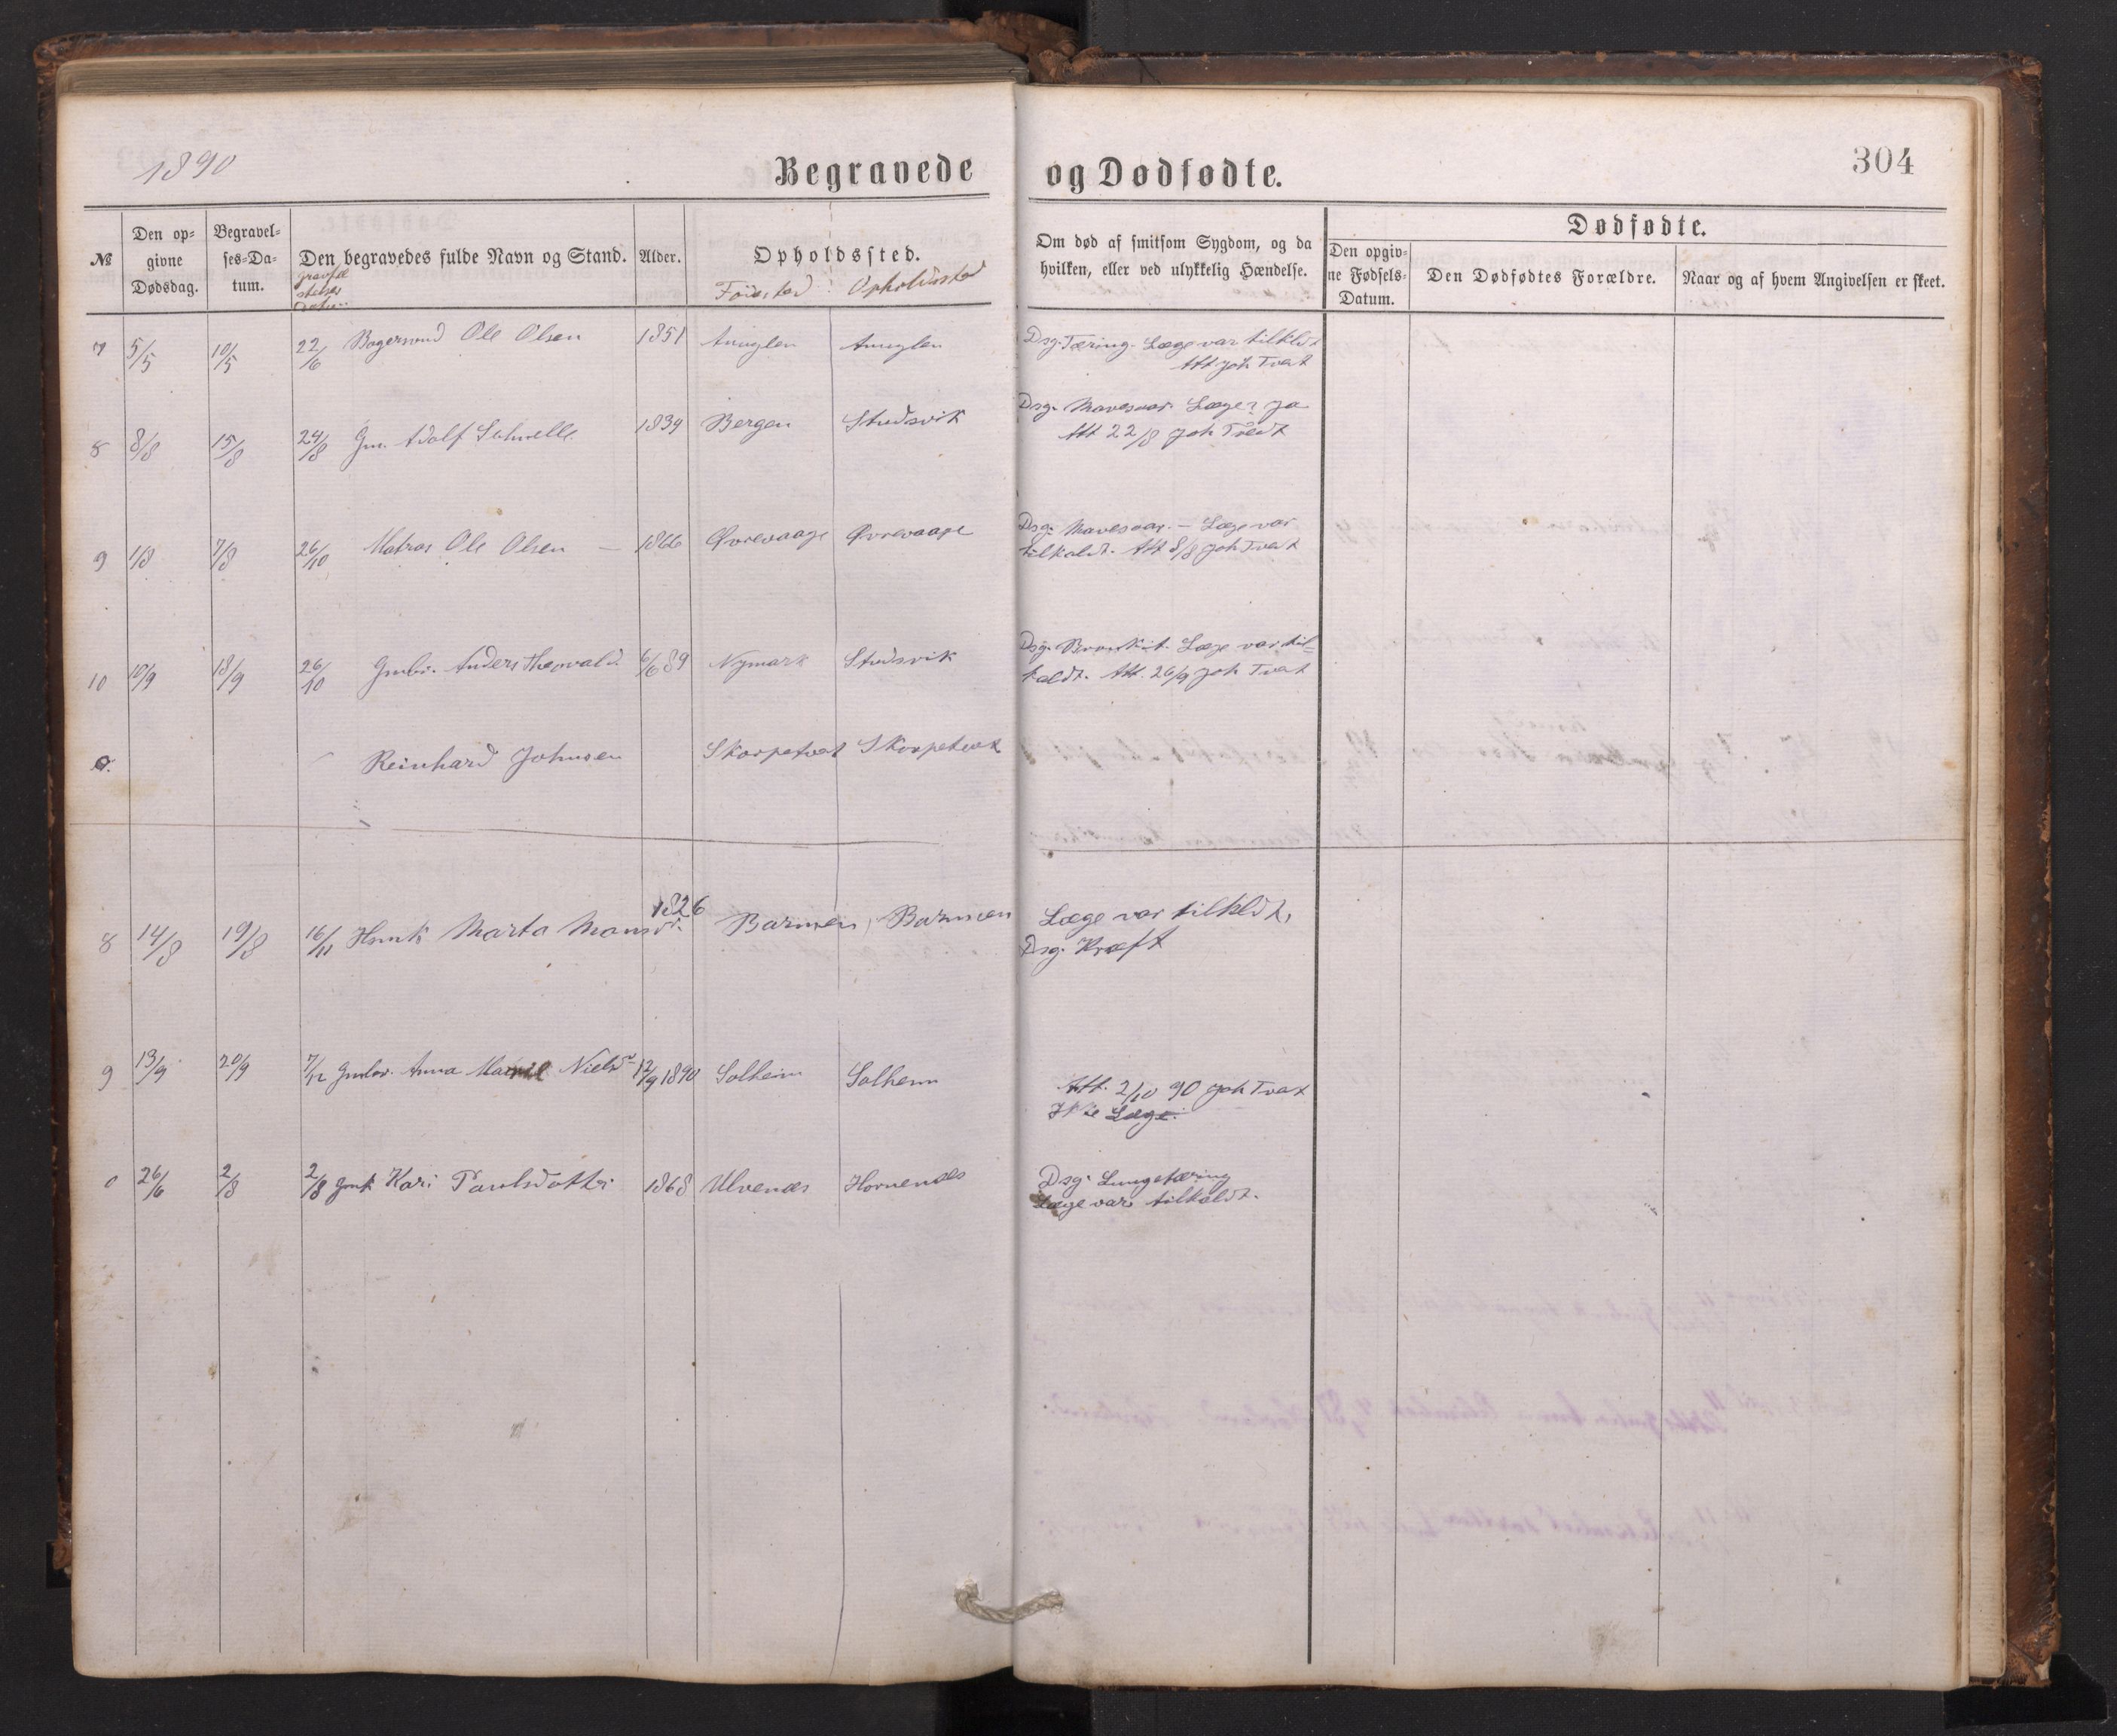 1890
Begravede og Dødfødte.
304
№
Den opgivne Dødsdag.
Begravelses-Datum.
Den begravedes fulde Navn og Stand.
Alder.
Opholdssted.
Fødested Opholdssted
Om død af smitsom Sygdom, og da hvilken, eller ved ulykkelig Hændelse.
Dødfødte.
Den opgivne Fødsels-Datum.
Den Dødfødtes Forældre.
Naar og af hvem Angivelsen er skeet.
7 5/5 10/5 22/6 Ole Olsen 1851 Anuglen Anuglen Dsg. Tæring. Læge var tilkldt
Att Joh Tvet
8 8/8 15/8 24/8 Gm. Adolf 1839 Bergen Studsvik Dsg. Mavesaar. Læge? Ja
Att 22/8 Joh Tvedt
9 1/8 7/8 26/10 Matros Ole Olsen – 1866 Øvrevaage Øvrevaage Dsg. Mavesaar. – Læge var
tilkaldt. Att 8/8 Joh Tvet
10 10/9 18/9 26/10 Gmbr. Anders Thorvald 6/6 89 Nymark Studsvik Dsg. Bronkit. Læge var til-
kaldt. Att. 26/9 Joh Tvet
Reinhard Johnsen Skorpetvet Skorpetvet
8 14/8 19/8 16/11 Hsmk Marta Mansdr. 1826 Barmen Barmen Læge var tilkldt,
Dsg. Kræft
9 13/9 20/9 7/12 Gmbr. Anna Marie Nielsdr 12/9 1890 Solheim Solheim Att. 2/10 90 Joh Tvet
Ikke Læge.
0 26/6 2/8 2/8 Gmk Kari Paulsdotter 1868 Ulvenes Hornenes Dsg. Lungetæring
Læge var tilkaldt.